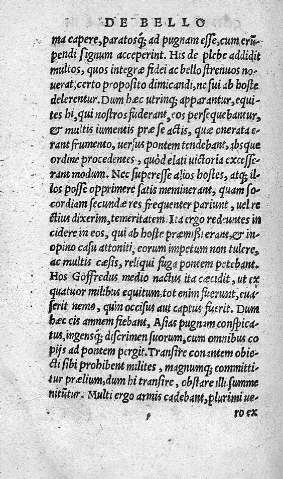 DE BELLO
ma capere, paratosq; ad pugnam esse, cum erũ-
pendi signum acceperint. His de plebe addidit
multos, quos integræ fidei ac bello strenuos no
uerat, certo proposito dimicandi, ne sui ab hoste
delerentur. Dum hæc utrinq; apparantur, equi-
tes hi, qui nostros fuderant, eos persequebantur,
& multis iumentis præ se actis, quæ onerata e-
rant frumento, uersus pontem tendebant, absque
ordine procedentes, quòd elati uictoria excesse-
rant modum. Nec superesse alios hostes, atq; il-
los posse opprimere satis meminerant, quam so-
cordiam secundæ res frequenter pariunt, uel re
ctius dixerim, temeritatem. Ita ergo redeuntes in
cidere in eos, qui ab hoste præmissi erant, & in-
opino casu attoniti, eorum impetum non tulere,
ac multis cæsis, reliqui fuga pontem petebant.
Hos Goffredus medio nactus ita cæcidit, ut ex
quatuor milibus equitum, tot enim fuerunt, eua-
serit nemo, quin occisus aut captus fuerit. Dum
hæc cis amnem fiebant, Asias pugnam conspica-
tus, ingensq; discrimen suorum, cum omnibus co
pijs ad pontem pergit. Transire conantem obie-
cti sibi prohibent milites, magnumq; committi-
tur prælium, dum hi transire, obstare illi summe
nitũtur. Multi ergo armis cadebant, plurimi ue-
ro ex